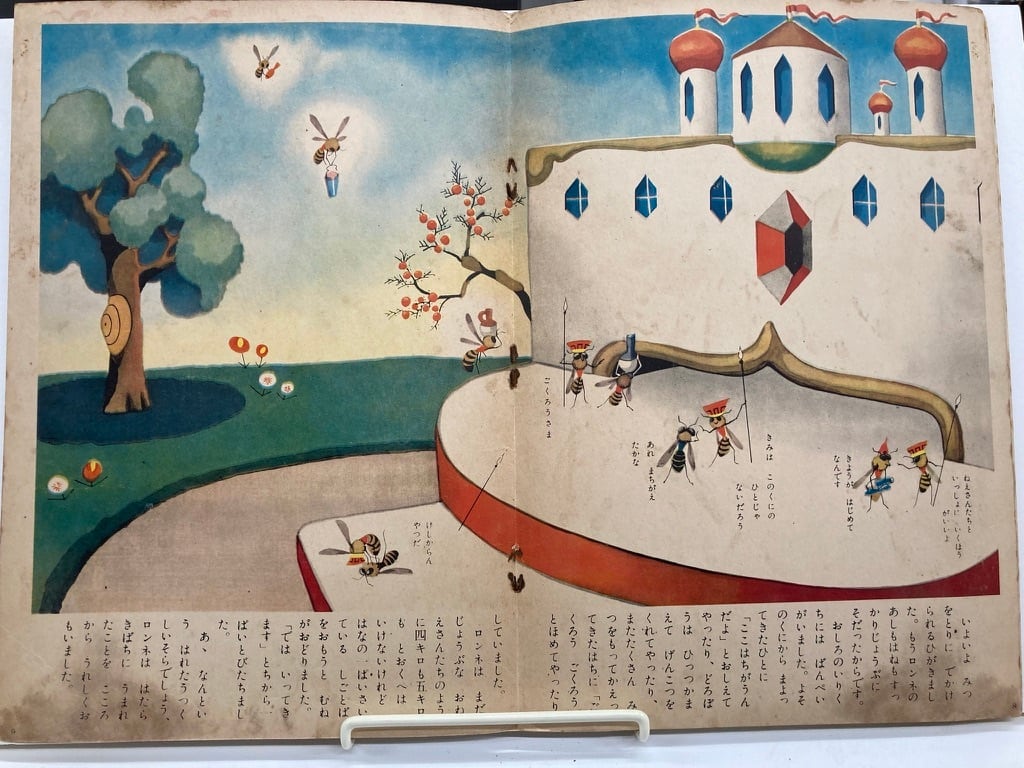 ねえさんたちと
いっしょに いくほう
がいいよ
きょうが はじめて
なんです
きみは このくにの
ひとじゃ
ないだろう
あれ まちがえ
たかな
ごくろうさま
けしからん
やつだ
いよいよ みつ
をとりに でかけ
られるひがきまし
た。もうロンネの
あしもはねもすっ
かりじょうぶに
そだったからです。
おしろのいりぐ
ちには ばんぺい
がいました。よそ
のくにから まよっ
てきたひとに
「ここはちがうん
だよ」とおしえて
やったり、どろぼ
うは ひっつかま
えて げんこつを
くれてやったり、
またたくさん み
つをもってかえっ
てきたはちに「ご
くろう ごくろう」
とほめてやったり
していました。
ロンネは まだ
じょうぶな おね
えさんたちのよう
に四キロも五キロ
も とおくへは
いけないけれど
はなの一ぱいさい
ている しごとば
をおもうと むね
がおどりました。
「では いってき
ます」とちから一
ぱいとびだちまし
た。
あゝ なんとい
う はれたうつく
しいそらでしょう、
ロンネは はたら
きばちに うまれ
たことを こころ
から うれしくお
もいました。